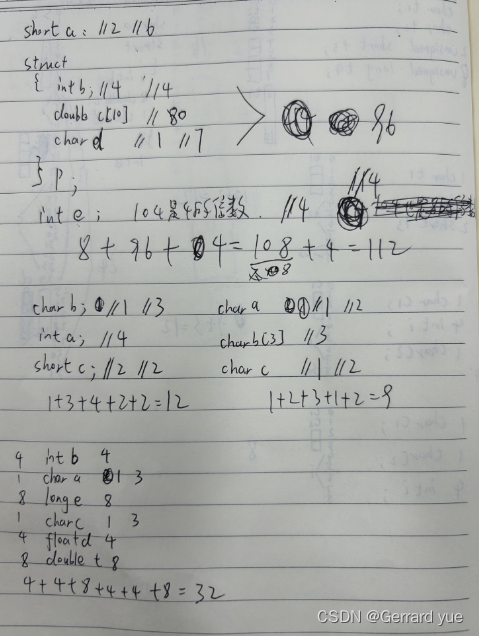 short a; //2 //6
struct
{ int b; //4 //4
double c[10] // 80
char d //1 //7
96
} p;
//4
int e; 104是4的倍数. //4
8 + 96 + 4 = 108 + 4 = 112
char b; //1 //3 char a //1 //2
int a; //4 char b[3] //3
short c; //2 //2 char c //1 //2
1+3+4+2+2=12 1+2+3+1+2=9
4 int b 4
1 char a 1 3
8 long e 8
1 char c 1 3
4 float d 4
8 double t 8
4+4+8+4+4+8=32
CSDN @Gerrard yue